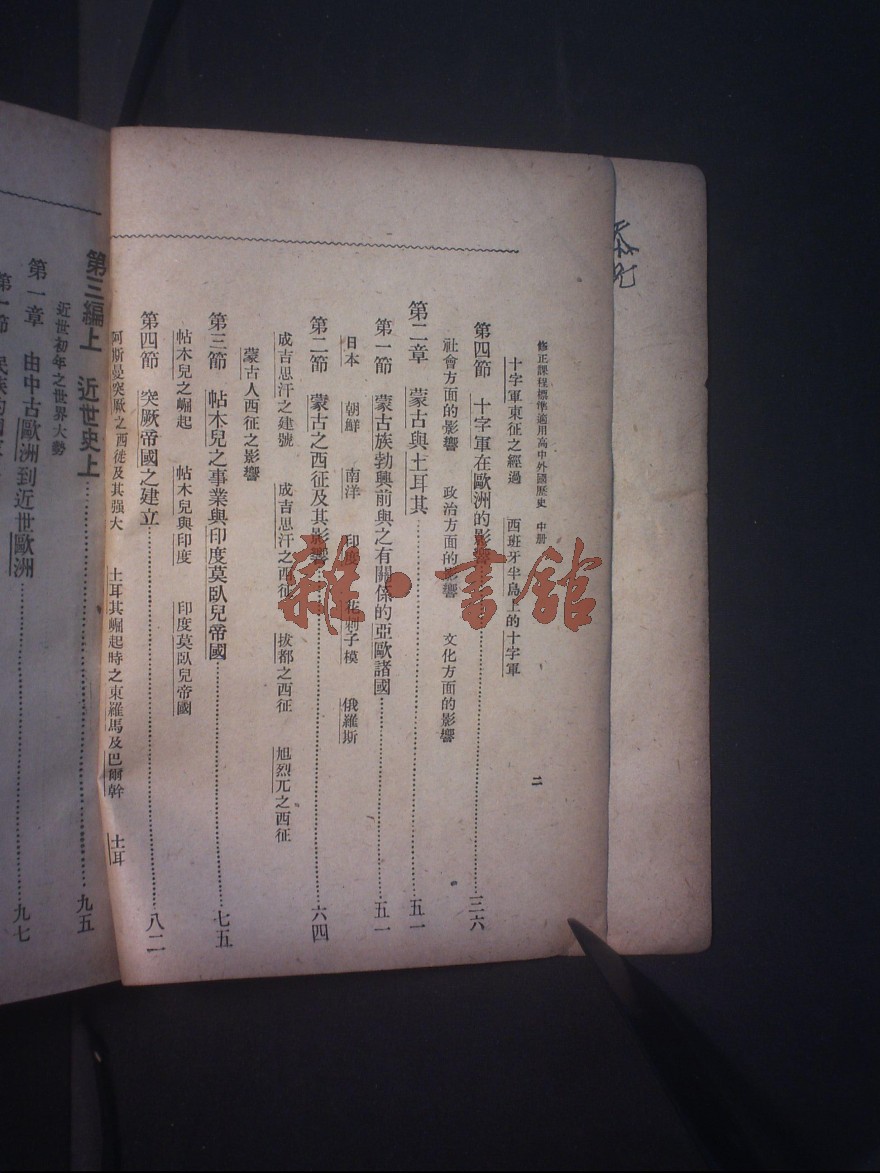 修正課程標準適用高中外國歷史　中册
二
十字軍東征之經過　西班牙半島上的十字軍
第四節　十字軍在歐洲的影響……三六
社會方面的影響　政治方面的影響　文化方面的影響
第二章　蒙古與土耳其……五一
第一節　蒙古族勃興前與之有關係的亞歐諸國……五一
日本　朝鮮　南洋　印度　花剌子模　俄羅斯
第二節　蒙古之西征及其影響……六四
成吉思汗之建號　成吉思汗之西征　拔都之西征　旭烈兀之西征
蒙古人西征之影響
第三節　帖木兒之事業與印度莫臥兒帝國……七五
帖木兒之崛起　帖木兒與印度　印度莫臥兒帝國
第四節　突厥帝國之建立……八二
阿斯曼突厥之西徙及其强大　土耳其崛起時之東羅馬及巴爾幹　土耳
第三編上　近世史上……九五
近世初年之世界大勢
第一章　由中古歐洲到近世歐洲……九七
第一節　民族的國
雜·書館